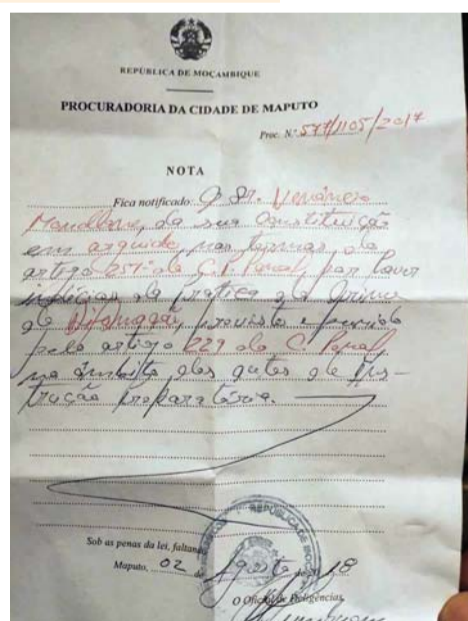 REPÚBLICA DE MOÇAMBIQUE
PROCURADORIA DA CIDADE DE MAPUTO
Proc. N.º 577/1105/2017
NOTA
Fica notificado: O Sr. Venâncio
Mondlane, da sua Constituição
em arguido, nos termos do
artigo 251º do C.P. Penal, por haver
indícios da prática do Crime
de Difamação, previsto e punido
pelo artigo 229 do C. Penal,
no âmbito dos autos de Ins-
trução preparatória.
Sob as penas da lei, faltando
Maputo, 02 de Agosto de 2018
O Oficial de Deligências,